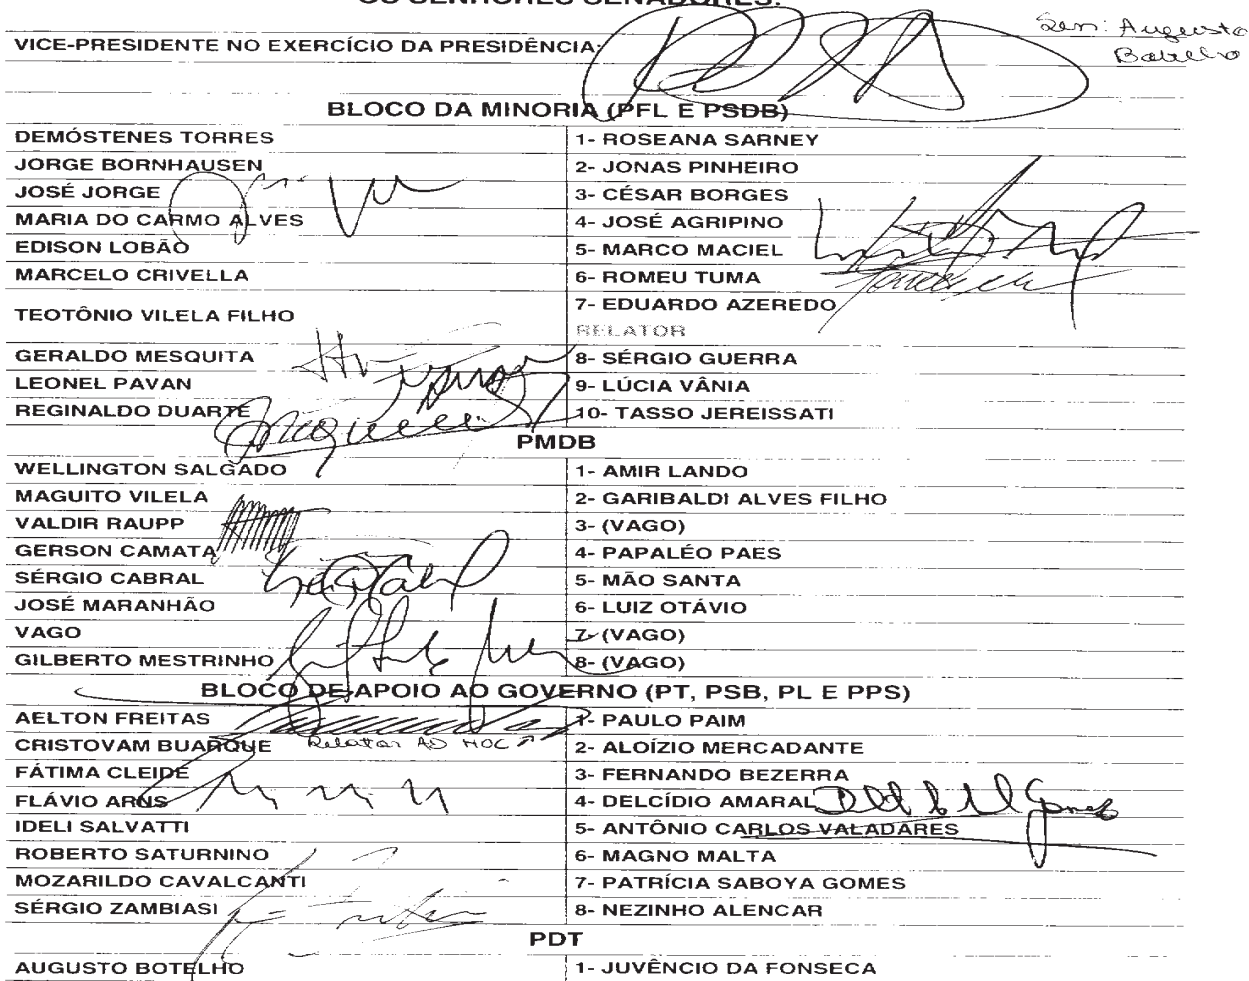 OS SENHORES SENADORES:
VICE-PRESIDENTE NO EXERCÍCIO DA PRESIDÊNCIA:
Sen: Augusto
Botelho
BLOCO DA MINORIA (PFL E PSDB)
DEMÓSTENES TORRES 1- ROSEANA SARNEY
JORGE BORNHAUSEN 2- JONAS PINHEIRO
JOSÉ JORGE 3- CÉSAR BORGES
MARIA DO CARMO ALVES 4- JOSÉ AGRIPINO
EDISON LOBÃO 5- MARCO MACIEL
MARCELO CRIVELLA 6- ROMEU TUMA
TEOTÔNIO VILELA FILHO 7- EDUARDO AZEREDO
RELATOR
GERALDO MESQUITA 8- SÉRGIO GUERRA
LEONEL PAVAN 9- LÚCIA VÂNIA
REGINALDO DUARTE 10- TASSO JEREISSATI
PMDB
WELLINGTON SALGADO 1- AMIR LANDO
MAGUITO VILELA 2- GARIBALDI ALVES FILHO
VALDIR RAUPP 3- (VAGO)
GERSON CAMATA 4- PAPALÉO PAES
SÉRGIO CABRAL 5- MÃO SANTA
JOSÉ MARANHÃO 6- LUIZ OTÁVIO
VAGO 7- (VAGO)
GILBERTO MESTRINHO 8- (VAGO)
BLOCO DE APOIO AO GOVERNO (PT, PSB, PL E PPS)
AELTON FREITAS 1- PAULO PAIM
CRISTOVAM BUARQUE Relator AD HOC 2- ALOÍZIO MERCADANTE
FÁTIMA CLEIDE 3- FERNANDO BEZERRA
FLÁVIO ARNS 4- DELCÍDIO AMARAL
IDELI SALVATTI 5- ANTÔNIO CARLOS VALADARES
ROBERTO SATURNINO 6- MAGNO MALTA
MOZARILDO CAVALCANTI 7- PATRÍCIA SABOYA GOMES
SÉRGIO ZAMBIASI 8- NEZINHO ALENCAR
PDT
AUGUSTO BOTELHO 1- JUVÊNCIO DA FONSECA